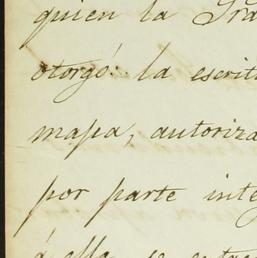 quien la Gra
otorgó: la escrit
mapa, autoriza
por parte inte
á ella se